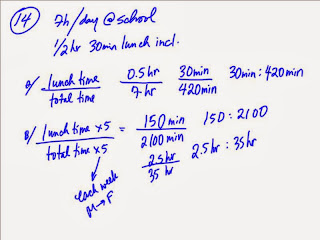 14 7h/day @ school
1/2 hr 30min lunch incl.
a/ lunch time / total time 0.5 hr / 7 hr 30min / 420min 30min : 420min
b/ lunch time x5 / total time x5 = 150 min / 2100 min 150 : 2100
2.5 hr / 35 hr 2.5 hr : 35 hr
each week
M → F